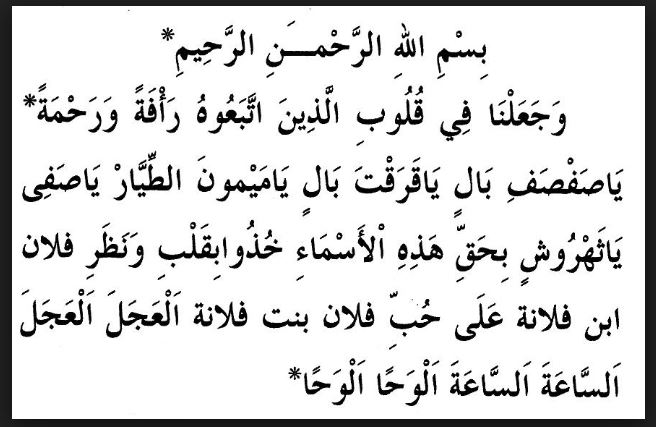 بِسْمِ اللهِ الرَّحْمـَنِ الرَّحِيمِ*
وَجَعَلْنَا فِي قُلُوبِ الَّذِينَ اتَّبَعُوهُ رَأْفَةً وَرَحْمَةً*
يَاصَفْصَفِ بَالٍ يَاقَرَقْتَ بَالٍ يَامَيْمونَ الطِّيَّارْ يَاصَفِى
يَاثَهْرُوشٍ بِحَقِّ هَذِهِ اْلأَسْمَاءِ خُذُوابِقَلْبِ وَنَظَرِ فلان
ابن فلانة عَلَى حُبِّ فلان بنت فلانة اَلْعَجَلَ اَلْعَجَلَ
اَلسَّاعَةَ اَلسَّاعَةَ اَلْوَحًا اَلْوَحًا*